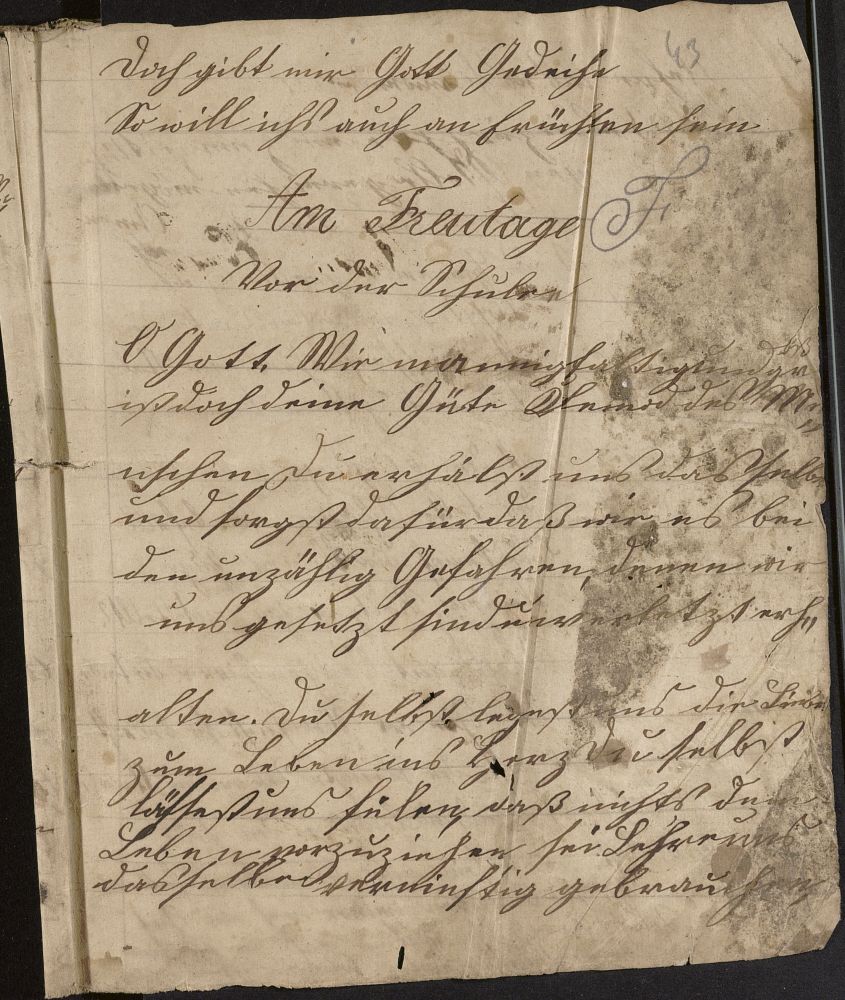 43
Doch gibt mir Gott Gedeihe
So will ichs auch an früchten sein
Am Freutage F
Vor der Schule
O Gott. Wie mannigfaltig und gr
ist doch deine Güte des Me„
nschen Du erhälst uns das
und sorgst dafür daß wir es bei
den unzählig Gefahren, denen wir
uns gesetzt sind unverletzt erh„
alten. Du selbst legest uns die Liebe
zum Leben ins Herz Du selbst
lässest uns fülen, daß nichts dem
Leben vorzuziehen sei. Lehre uns
dasselbe vernünftig gebrauchen,